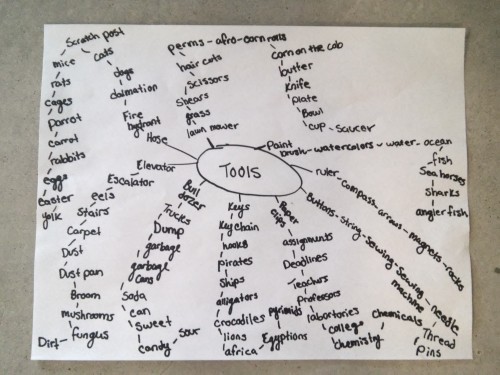 TOOLS
lawn mower
grass
Shears
scissors
hair cuts
perms - afro - corn rolls
corn on the cob
butter
Knife
plate
Bowl
cup - saucer
Paint
brush - watercolors - water - ocean
fish
Sea horses
Sharks
angler fish
ruler - compass - arrows - magnets - rocks
Buttons - String - Sewing - Sewing
machine
needle
Thread
Pins
Paper
clips
assignments
Deadlines
Teachers
Professors
labortories
college
chemistry
Chemicals
Keys
Key chain
hooks
pirates
Ships
alligators
crocodiles
lions
africa - Egyptions
pyramids
Bull
dozer
Trucks
Dump
garbage
garbage
cans
Soda
can
Sweet
candy - sour
Elevator
Escalator
Stairs
Carpet
Dust
Dust pan
Broom
mushrooms
fungus
Dirt
Hose
Fire
hydrant
dalmation
dogs
cats
Scratch post
mice
rats
cages
parrot
carrot
rabbits
eggs
easter
yolk
eels